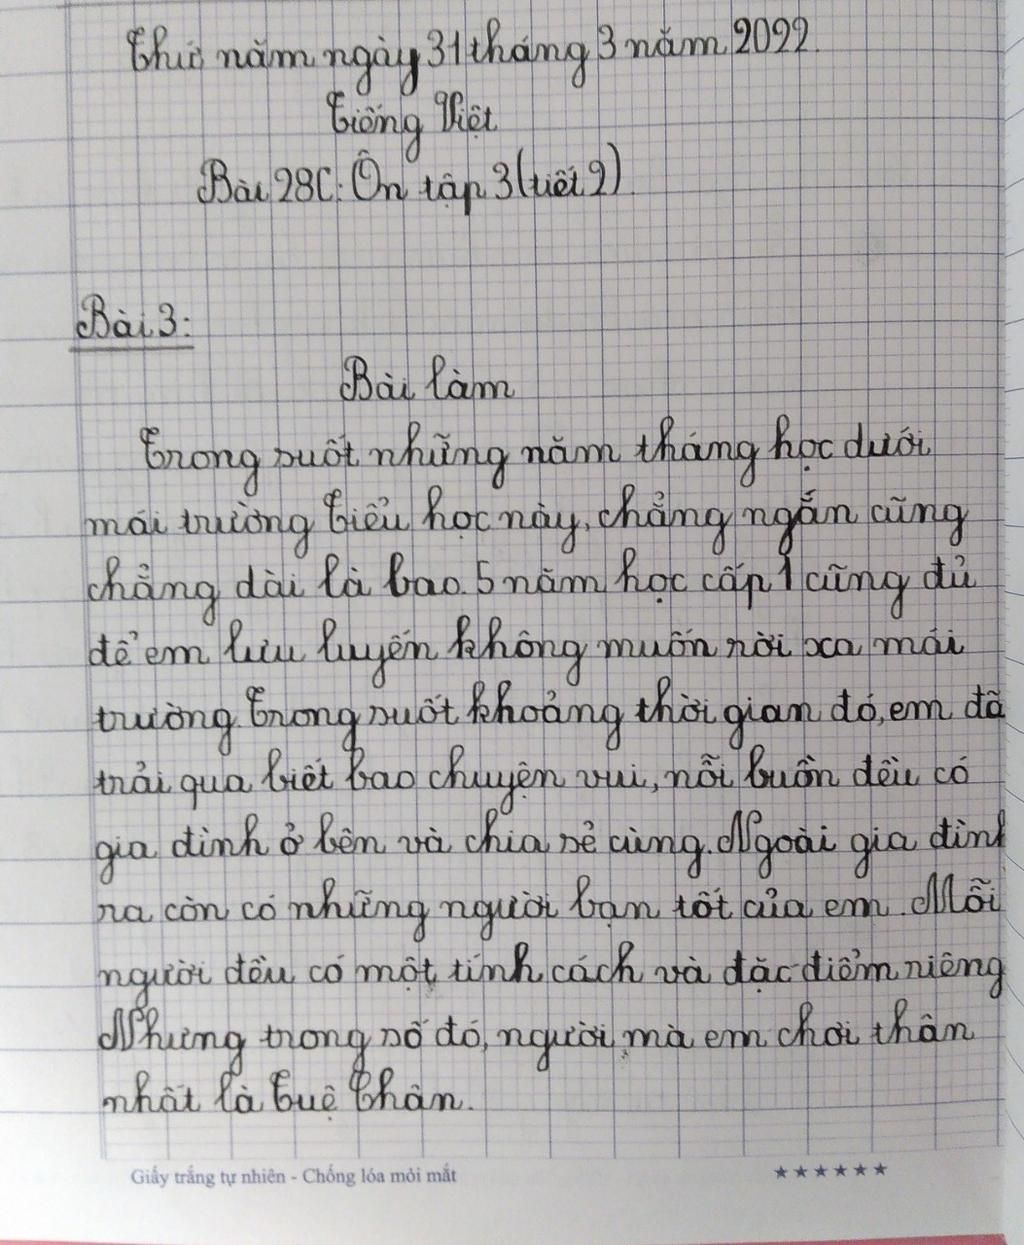 Thứ năm ngày 31 tháng 3 năm 2022.
Tiếng Việt
Bài 28C: Ôn tập 3 (tiết 2)
Bài 3:
Bài làm
Trong suốt những năm tháng học dưới
mái trường Tiểu học này, chẳng ngắn cũng
chẳng dài là bao. 5 năm học cấp 1 cũng đủ
để em lưu luyến không muốn rời xa mái
trường. Trong suốt khoảng thời gian đó, em đã
trải qua biết bao chuyện vui, nỗi buồn đều có
gia đình ở bên và chia sẻ cùng. Ngoài gia đình
ra còn có những người bạn tốt của em. Mỗi
người đều có một tính cách và đặc điểm riêng
Nhưng trong số đó, người mà em chơi thân
nhất là Tuệ Thân.
Giấy trắng tự nhiên - Chống lóa mỏi mắt